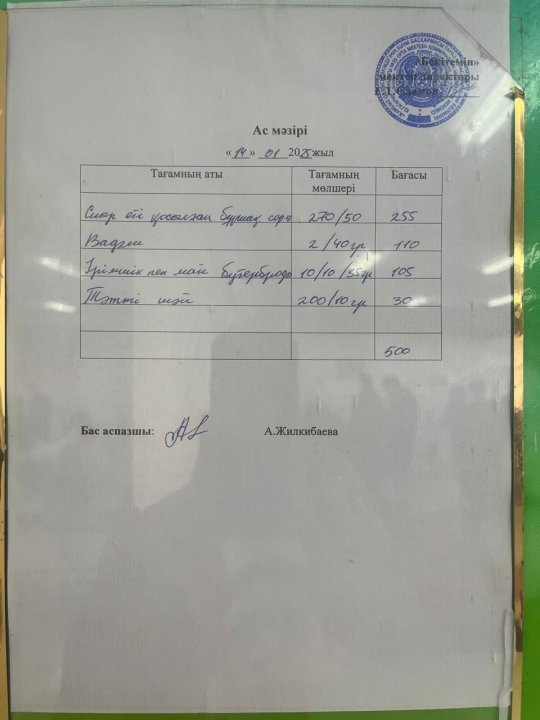 «Бекітемін»
мектеп директоры
Ас мәзірі
«14» 01 2025 жыл
Тағамның аты Тағамның мөлшері Бағасы
Сиыр еті қосылған бұршақ сорпа 270/50 255
Вафли 2/40гр 110
Ірімшік пен май бутерброд 10/10/35гр 105
Тәтті шәй 200/10гр 30
500
Бас аспазшы: А.Жилкибаева